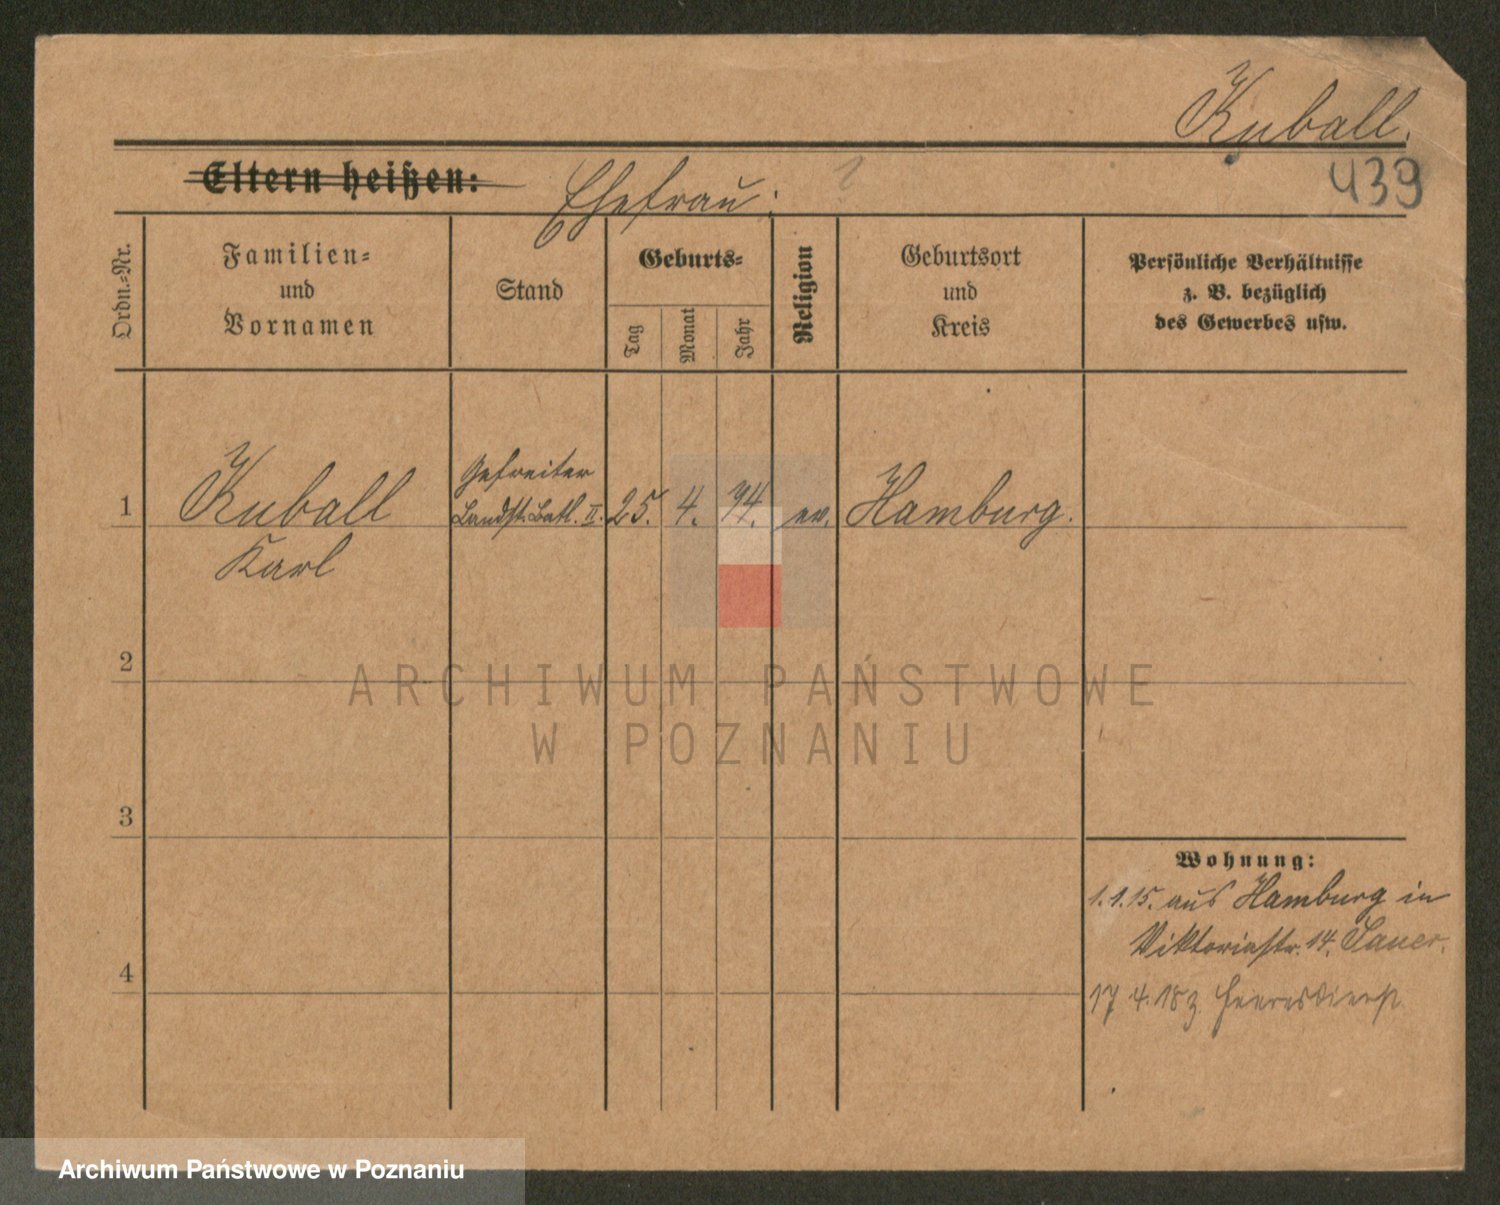 Kuball.
439
Eltern heißen:
Ehefrau:
Ordn.-Nr.
Familien-
und
Vornamen
Stand
Geburts-
Tag
Monat
Jahr
Religion
Geburtsort
und
Kreis
Persönliche Verhältnisse
z. B. bezüglich
des Gewerbes usw.
1
Kuball
Karl
Gefreiter
Landst. Batl. II.
25.
4.
74.
ev.
Hamburg.
2
3
4
Wohnung:
1.1.15. aus Hamburg in
Viktoriastr. 14. Sauer.
17 4. 18 z. Heeresdienst
ARCHIWUM PAŃSTWOWE
W POZNANIU
Archiwum Państwowe w Poznaniu